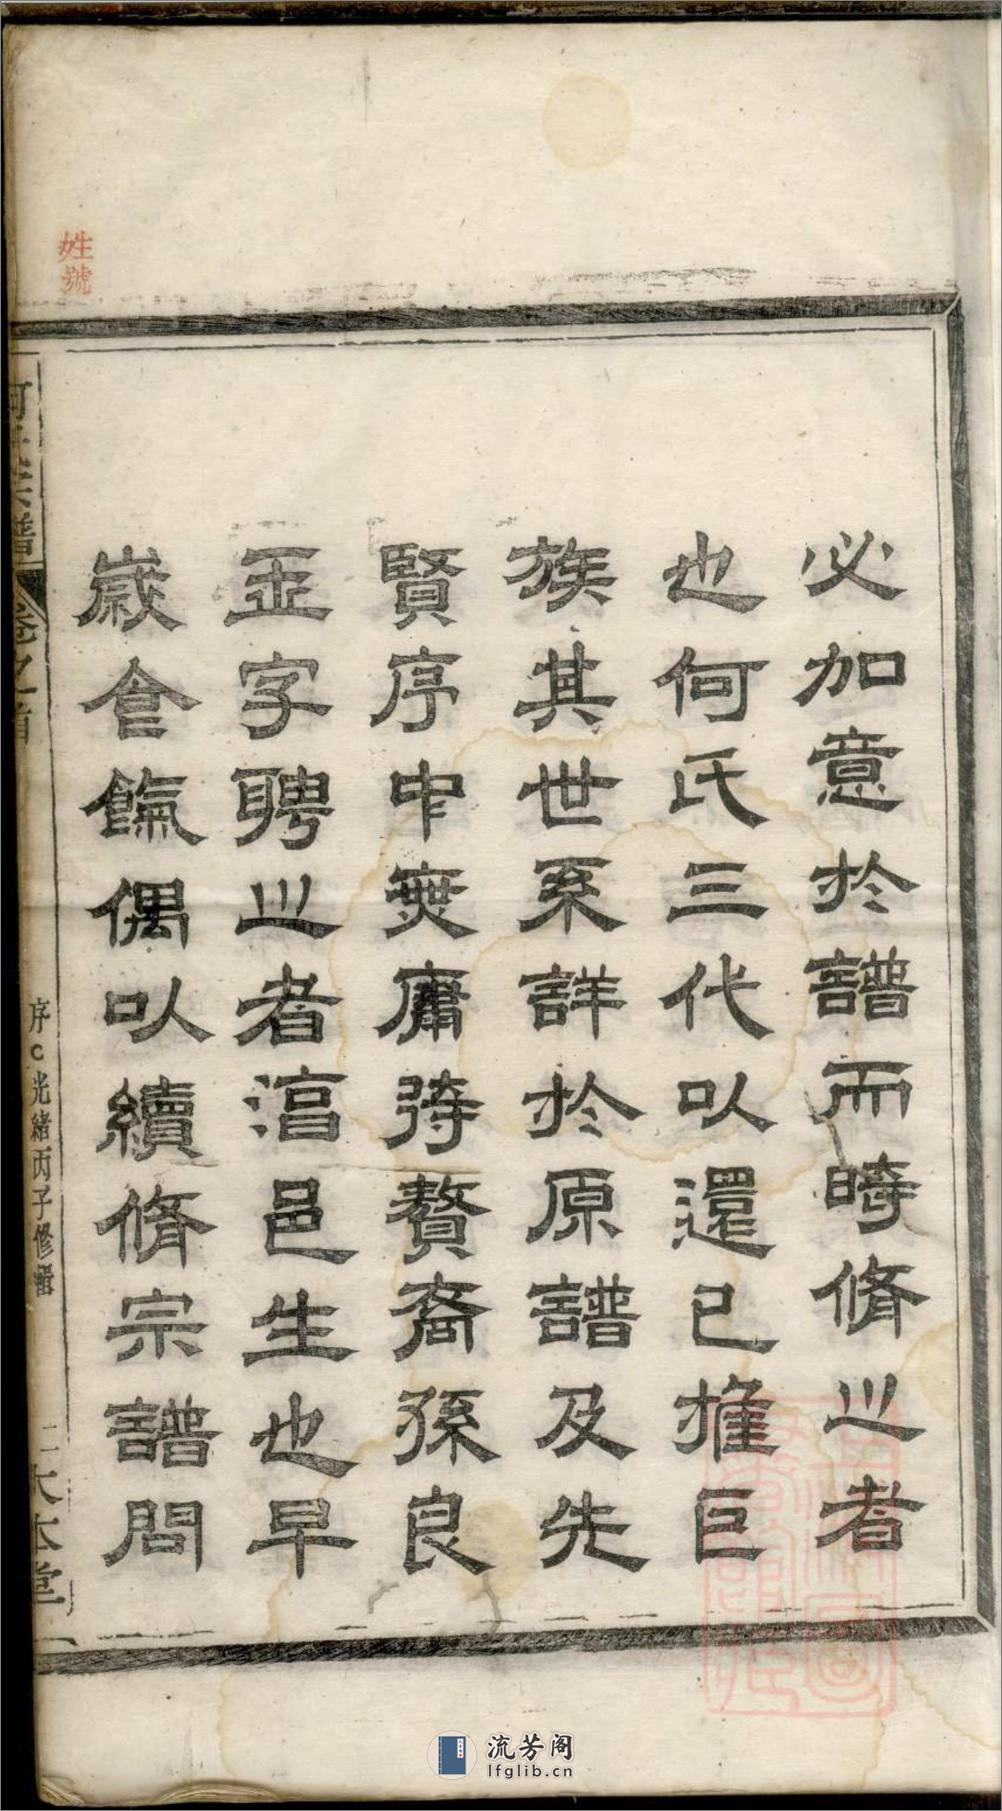 必加意於譜而時脩㞢者
也何氏三代以還已推巨
族其世系詳於原譜及先
賢序中無庸待贅裔孫良
玨字聘㞢者涫邑生也早
歲食餼偶以續脩宗譜問
姓號
何氏宗譜
卷之首
序
光緒丙子修譜
二
大本堂
流芳阁
lfglib.cn